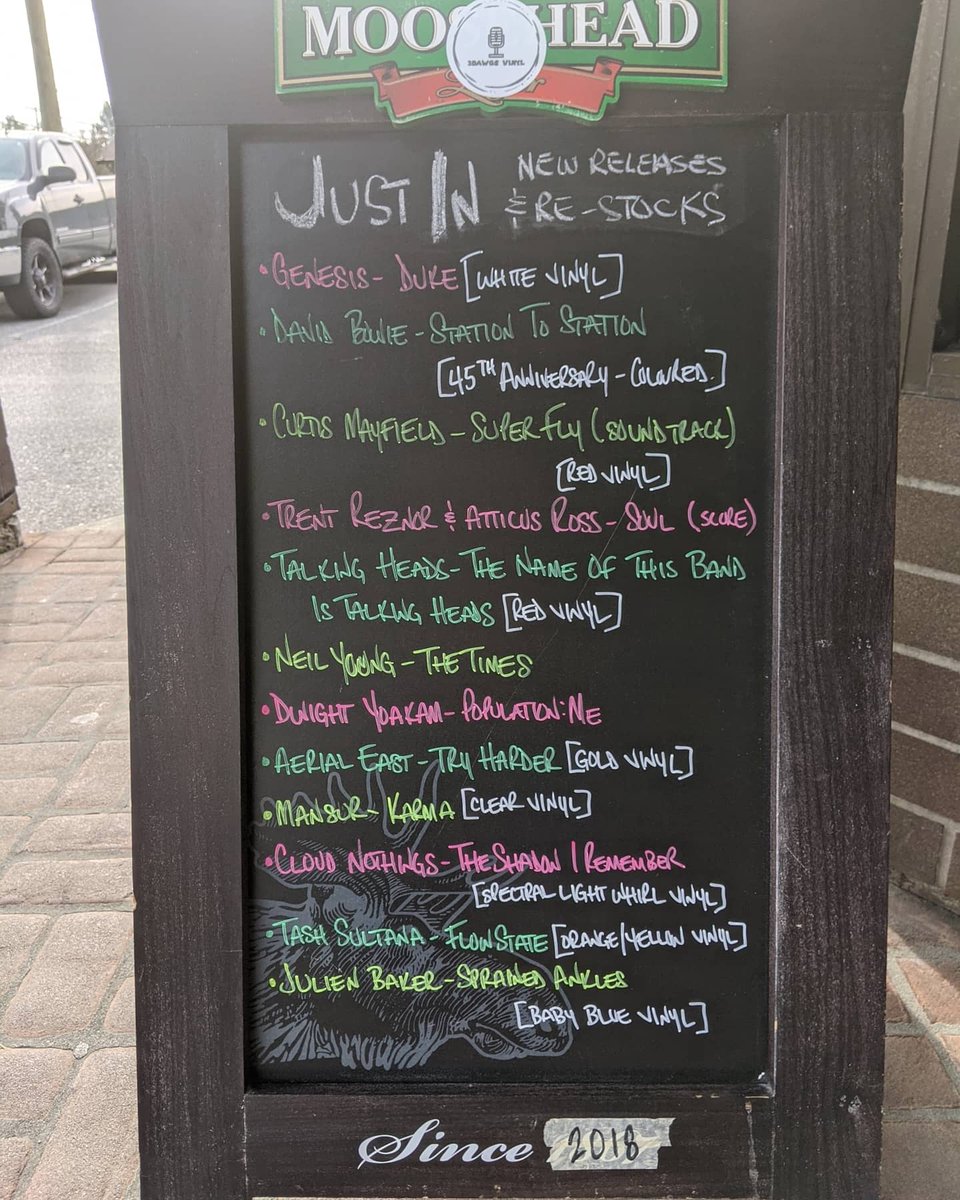 MOOSEHEAD
3DAWGS VINYL
JUST IN NEW RELEASES
& RE-STOCKS
•GENESIS - DUKE [WHITE VINYL]
•DAVID BOWIE - STATION TO STATION
[45TH ANNIVERSARY - COLOURED.]
•CURTIS MAYFIELD - SUPERFLY (SOUNDTRACK)
[RED VINYL]
•TRENT REZNOR & ATTICUS ROSS - SOUL (SCORE)
•TALKING HEADS - THE NAME OF THIS BAND
IS TALKING HEADS [RED VINYL]
•NEIL YOUNG - THE TIMES
•DWIGHT YOAKAM - POPULATION: ME
•AERIAL EAST - TRY HARDER [GOLD VINYL]
•MANSUR - KARMA [CLEAR VINYL]
•CLOUD NOTHINGS - THE SHADOW I REMEMBER
[SPECTRAL LIGHT WHIRL VINYL]
•TASH SULTANA - FLOW STATE [ORANGE/YELLOW VINYL]
•JULIEN BAKER - SPRAINED ANKLES
[BABY BLUE VINYL]
Since 2018